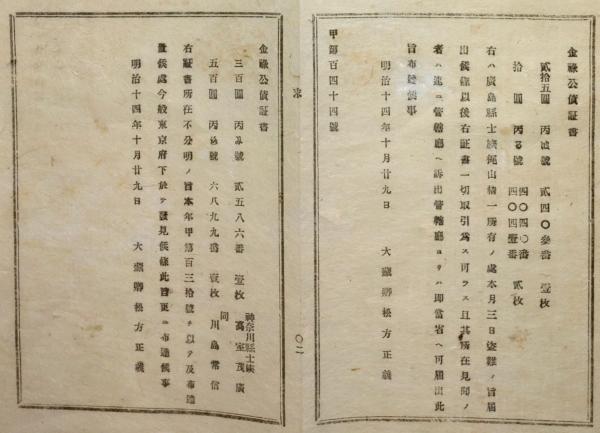 金祿公債証書
貳拾五圓 丙は號 貳四〇參番 壹枚
拾圓 丙る號 四〇四〇番 四〇四壹番 貳枚
右ハ廣島縣士族 山精一所有ノ處本月三日盜難ノ旨届
出候條以後右証書一切取引爲ス可ラス且其所在見聞ノ
者ハ速ニ管轄廳ヘ訴出管轄廳ヨリハ即當省ヘ可届出此
旨布達候事
明治十四年十月廿九日 大藏卿松方正義
甲第百四十四號
金祿公債証書
三百圓 丙 號 貳五八六番 壹枚 神奈川縣士族 高室茂廣
五百圓 丙 號 六八九九番 壹枚 同 川島常信
右証書所在不分明ノ旨本年甲第百三拾號ヲ以テ及布達
置候處今般東京府下於テ發見候條此旨更ニ布達候事
明治十四年十月廿九日 大藏卿松方正義
〇二